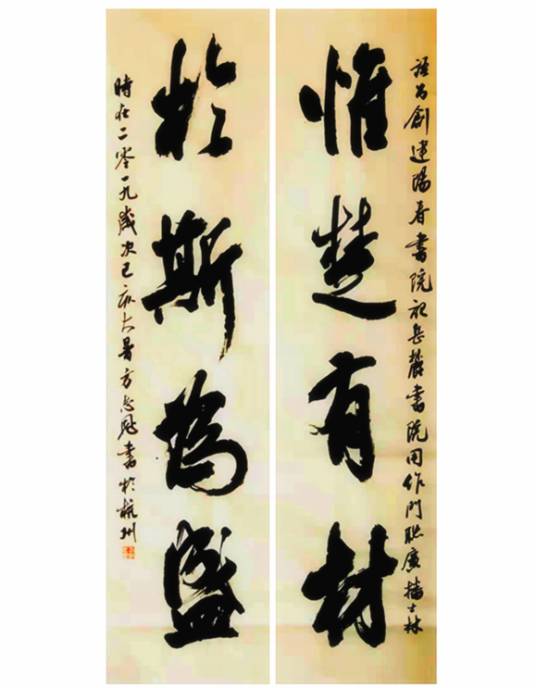 為創建陽春書院 岳麓書院用作門聯廣播士林
惟楚有材
於斯為盛
時在二零一九歲次己亥大暑方志 書於杭州